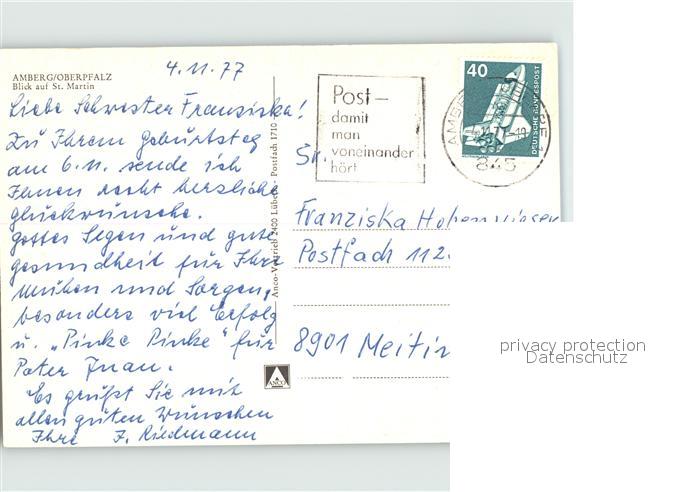 AMBERG/OBERPFALZ
Blick auf St. Martin
4.11.77
Liebe Schwester Franziska!
Zu Ihrem Geburtstag
am 6.11. sende ich
Ihnen recht herzliche
Glückwünsche.
Gottes Segen und gute
Gesundheit für Ihre
Mühen und Sorgen,
besonders viel Erfolg
u. „Pinke Pinke" für
Pater Juan.
Es grüßt Sie mit
allen guten Wünschen
Ihre J. Riedmann
Anco-Vertrieb 2400 Lübeck Postfach 1710
ANCO
Post –
damit
man
voneinander
hört
40
DEUTSCHE BUNDESPOST
845
Sr.
Franziska
Postfach 112
8901 Meitin
privacy protection
Datenschutz